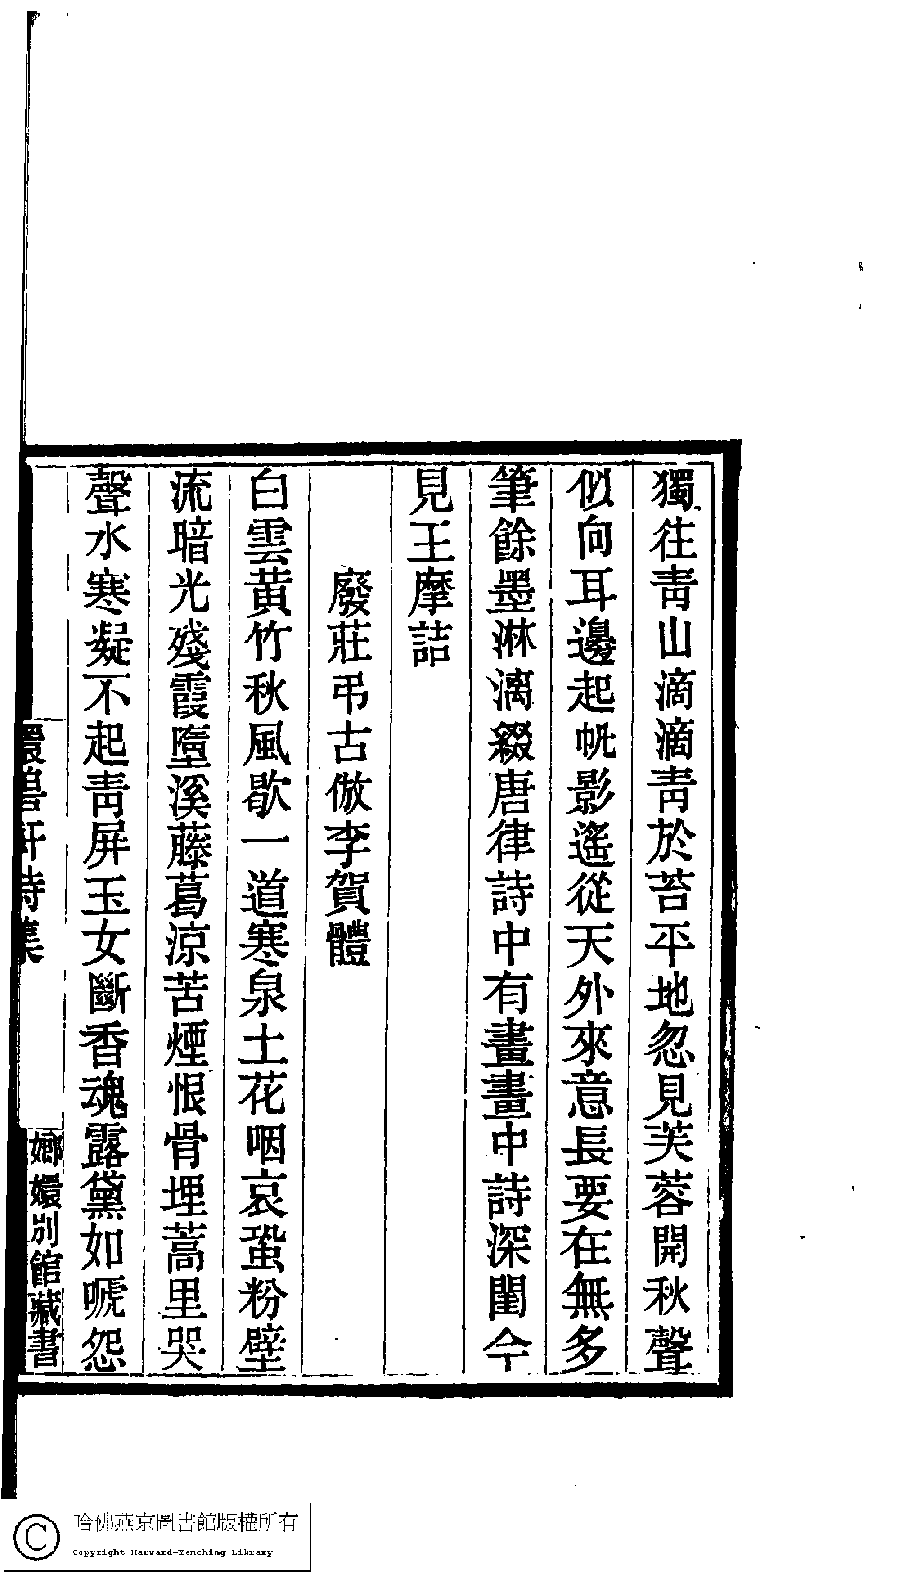 獨往靑山滴滴靑於苔平地忽見芙蓉開秋聲
似向耳邊起帆影遙從天外來意長要在無多
筆餘墨淋漓綴唐律詩中有畫畫中詩深閨今
見王摩詰
廢莊弔古倣李賀體
白雲黃竹秋風歇一道寒泉土花咽哀蛩粉壁
流暗光殘霞墮溪藤葛涼苦煙恨骨埋蒿里哭
聲水寒凝不起靑屏玉女斷香魂露黛如嗁怨
軒詩集
嫏嬛別館藏書
哈佛燕京圖書館版權所有
Copyright Harvard-Yenching Library